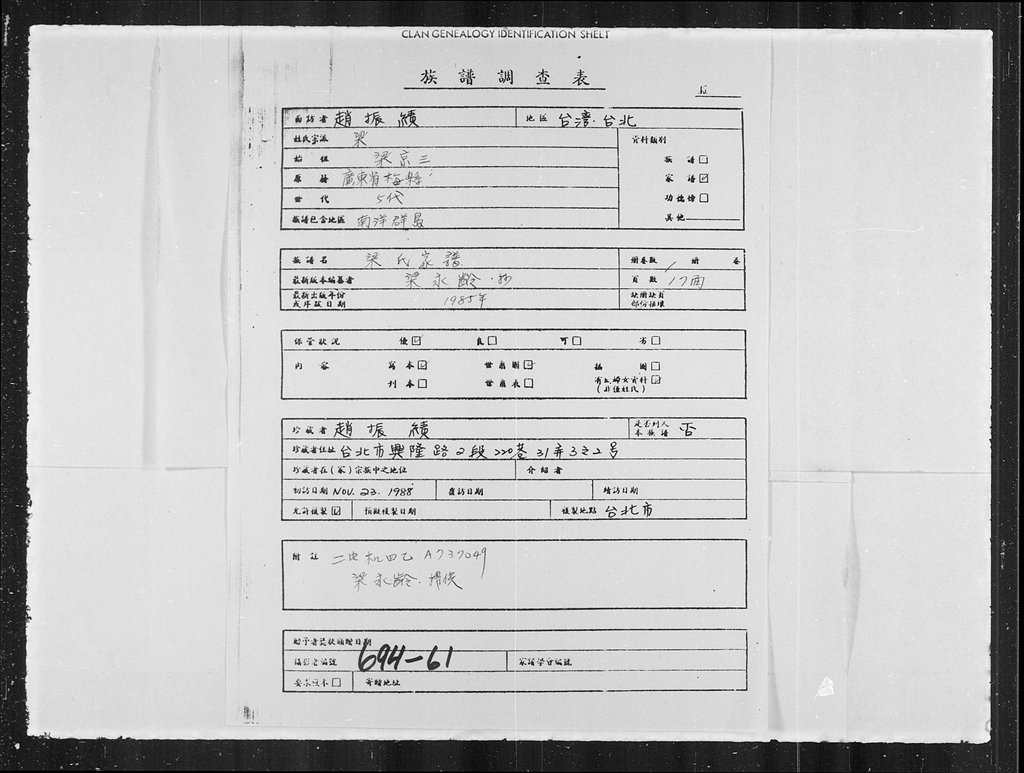 CLAN GENEALOGY IDENTIFICATION SHEET
族譜調查表
№
面訪者 趙振績 地區 台灣.台北
姓氏宗派 梁 資料類別
始祖 梁京三 族譜□
原籍 廣東省梅縣 家譜☑
世代 5代 功德譜□
族譜包含地區 南洋群島 其他
族譜名 梁氏家譜 冊卷數 1 冊 卷
最新版本編纂者 梁永齡.抄 頁數 17面
最新出版年份 1985年 缺冊缺頁
或序跋日期 部份損壞
保管狀況 優☑ 良□ 可□ 劣□
內容 寫本☑ 世系圖☑ 插圖□
刊本□ 世系表□ 有關婦女資料☑
(非僅姓氏)
珍藏者 趙振績 是否列入
本族譜 否
珍藏者住址 台北市興隆路2段220巷31弄3之2号
珍藏者在(家)宗族中之地位 介紹者
初訪日期 NOV. 23. 1988 覆訪日期 續訪日期
允許複製☑ 預擬複製日期 複製地點 台北市
附註 A737049
梁永齡.提供
贈予者獎狀頒贈日期
攝影者編號 694-61 家譜學會編號
要求複本□ 寄贈地址